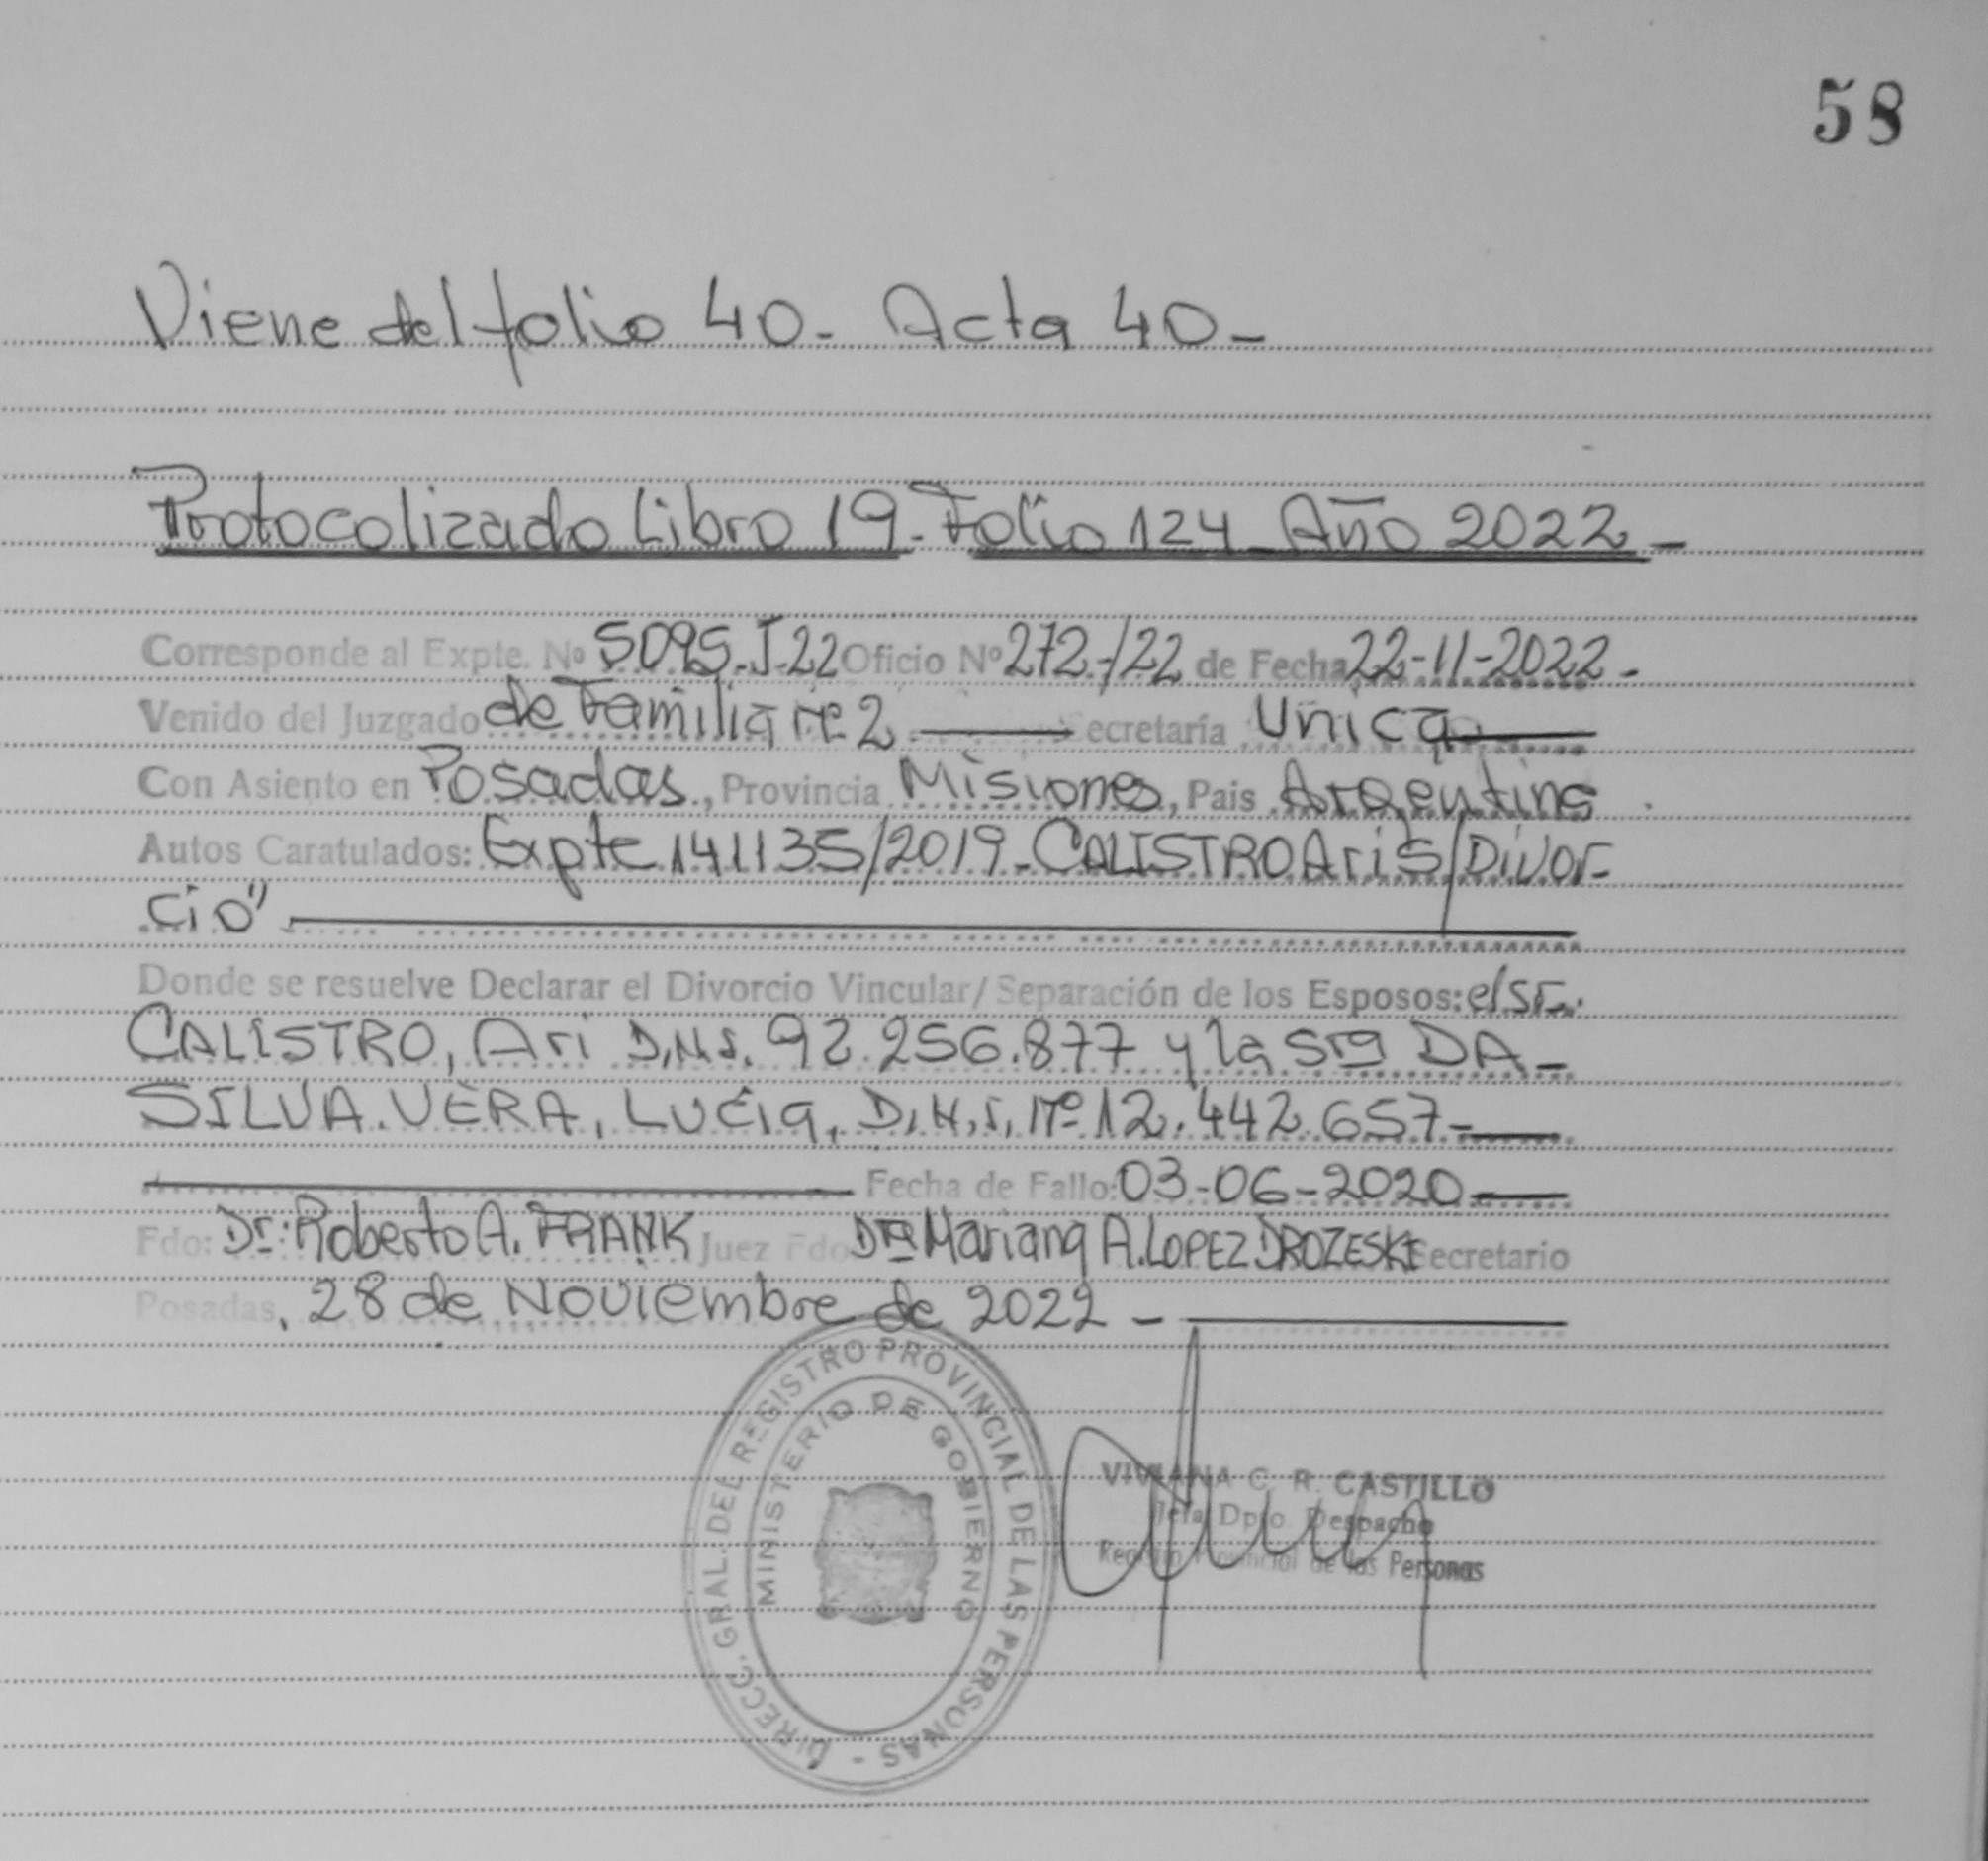 58
Viene del folio 40- Acta 40-
Protocolizado Libro 19-Folio 124-Año 2022-
Corresponde al Expte. Nº 5095-J-22 Oficio Nº 272-/22 de Fecha 22-11-2022-
Venido del Juzgado de Familia nº 2 Secretaría Unica
Con Asiento en Posadas, Provincia Misiones, Pais Argentina
Autos Caratulados: Expte 141135/2019-CALISTRO Ari S/Divor-
cio"
Donde se resuelve Declarar el Divorcio Vincular/Separación de los Esposos: el Sr.
CALISTRO, Ari D.N.I. 92.256.877 y la Sra DA-
SILVA.VERA, Lucia, D.N.I. Nº 12.442.657-
Fecha de Fallo: 03-06-2020
Fdo: Dr: Roberto A. FRANK Juez Fdo Dra Mariana A. LOPEZ DROZESKI Secretario
Posadas, 28 de Noviembre de 2022-
DIRECC. GRAL. DEL REGISTRO PROVINCIAL DE LAS PERSONAS -
MINISTERIO DE GOBIERNO
VIVIANA C. R. CASTILLO
Jefa Dpto. Despacho
Registro Provincial de las Personas